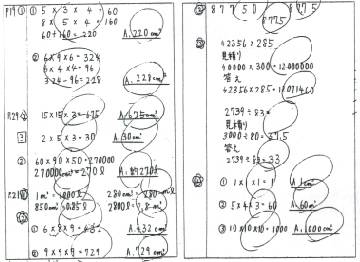 P119 ① 5 × 3 × 4 = 60
8 × 5 × 4 = 160
60+160=220 A.220cm³
② 6×9×6=324
6×4×4=96
324-96=228 A.228cm³
15×15×3=675 A.675cm³
2×5×3=30 A.30cm³
② 60×90×50=270000
270000cm³=270ℓ A.270ℓ
1m³=1000ℓ 280cm³=280mℓ
850cm³=0.85ℓ
① 6×8×9=432 A.432cm³
② 9×9×9=729 A.729cm³
8775
42356×285
見積り
40000×300=12000000
答え
42356×285=
2739÷83=
見積り
3000÷80=37.5
答え
2739÷83=33
① 1×1×1=1 A.1cm³
② 5×4×3=60 A.60m³
③ 10×10×10=1000 A.1000cm³